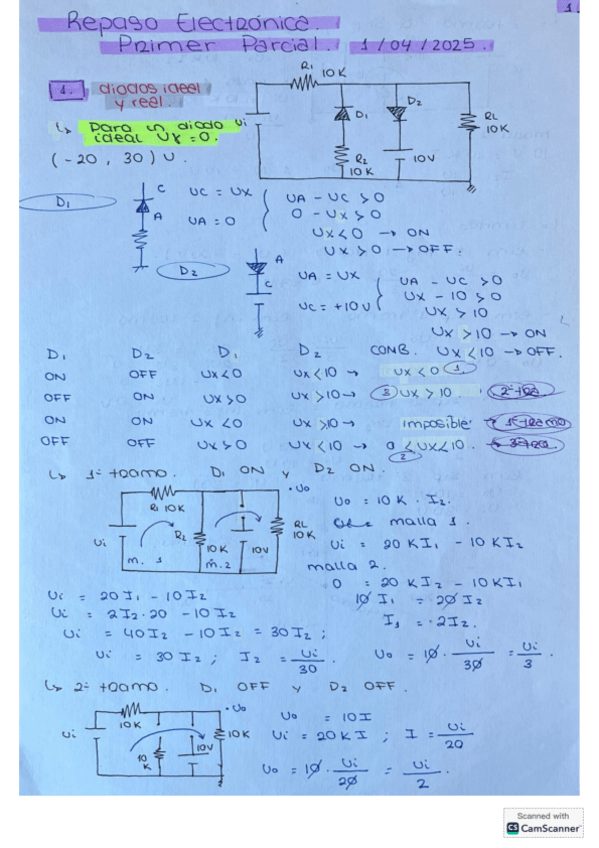 1
Repaso Electrónica.
Primer Parcial. 1/04/2025.
1. diodos ideal
y real.
↳ Para un diodo
ideal Ux = 0.
(-20, 30) V.
R1 10K
Ui
D1
D2
R2
10K
10V
RL
10K
D1
C
A
Uc = Ux
UA = 0
UA - Uc > 0
0 - Ux > 0
Ux < 0 → ON
Ux > 0 → OFF.
D2
A
C
UA = Ux
Uc = +10V
UA - Uc > 0
Ux - 10 > 0
Ux > 10
Ux > 10 → ON
D1 D2 D1 D2 CONB. Ux < 10 → OFF.
ON OFF Ux < 0 Ux < 10 → Ux < 0 1
OFF ON Ux > 0 Ux > 10 → 3 Ux > 10.
ON ON Ux < 0 Ux > 10 → imposible
OFF OFF Ux > 0 Ux < 10 → 0 < Ux < 10.
2
↳ 1º tramo. D1 ON y D2 ON.
· Uo
R1 10K
R2
10K
10V
RL
10K
Ui
m. 1
m. 2
Uo = 10K · I2.
malla 1.
Ui = 20KI1 - 10KI2
malla 2.
0 = 20KI2 - 10KI1
10 I1 = 20 I2
I1 = 2I2.
Ui = 20I1 - 10I2
Ui = 2I2·20 - 10I2
Ui = 40I2 - 10I2 = 30I2 ;
Ui = 30I2 ; I2 = Ui/30
Uo = 10 · Ui/30 = Ui/3
↳ 2º tramo. D1 OFF y D2 OFF.
· Uo
10K
Ui
10K
10V
10K
Uo = 10I
Ui = 20KI ; I = Ui/20
Uo = 10 · Ui/20 = Ui/2.
Scanned with
CS CamScanner